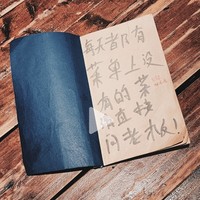 每天都有
菜单上没
有的菜
请直接
问老板!